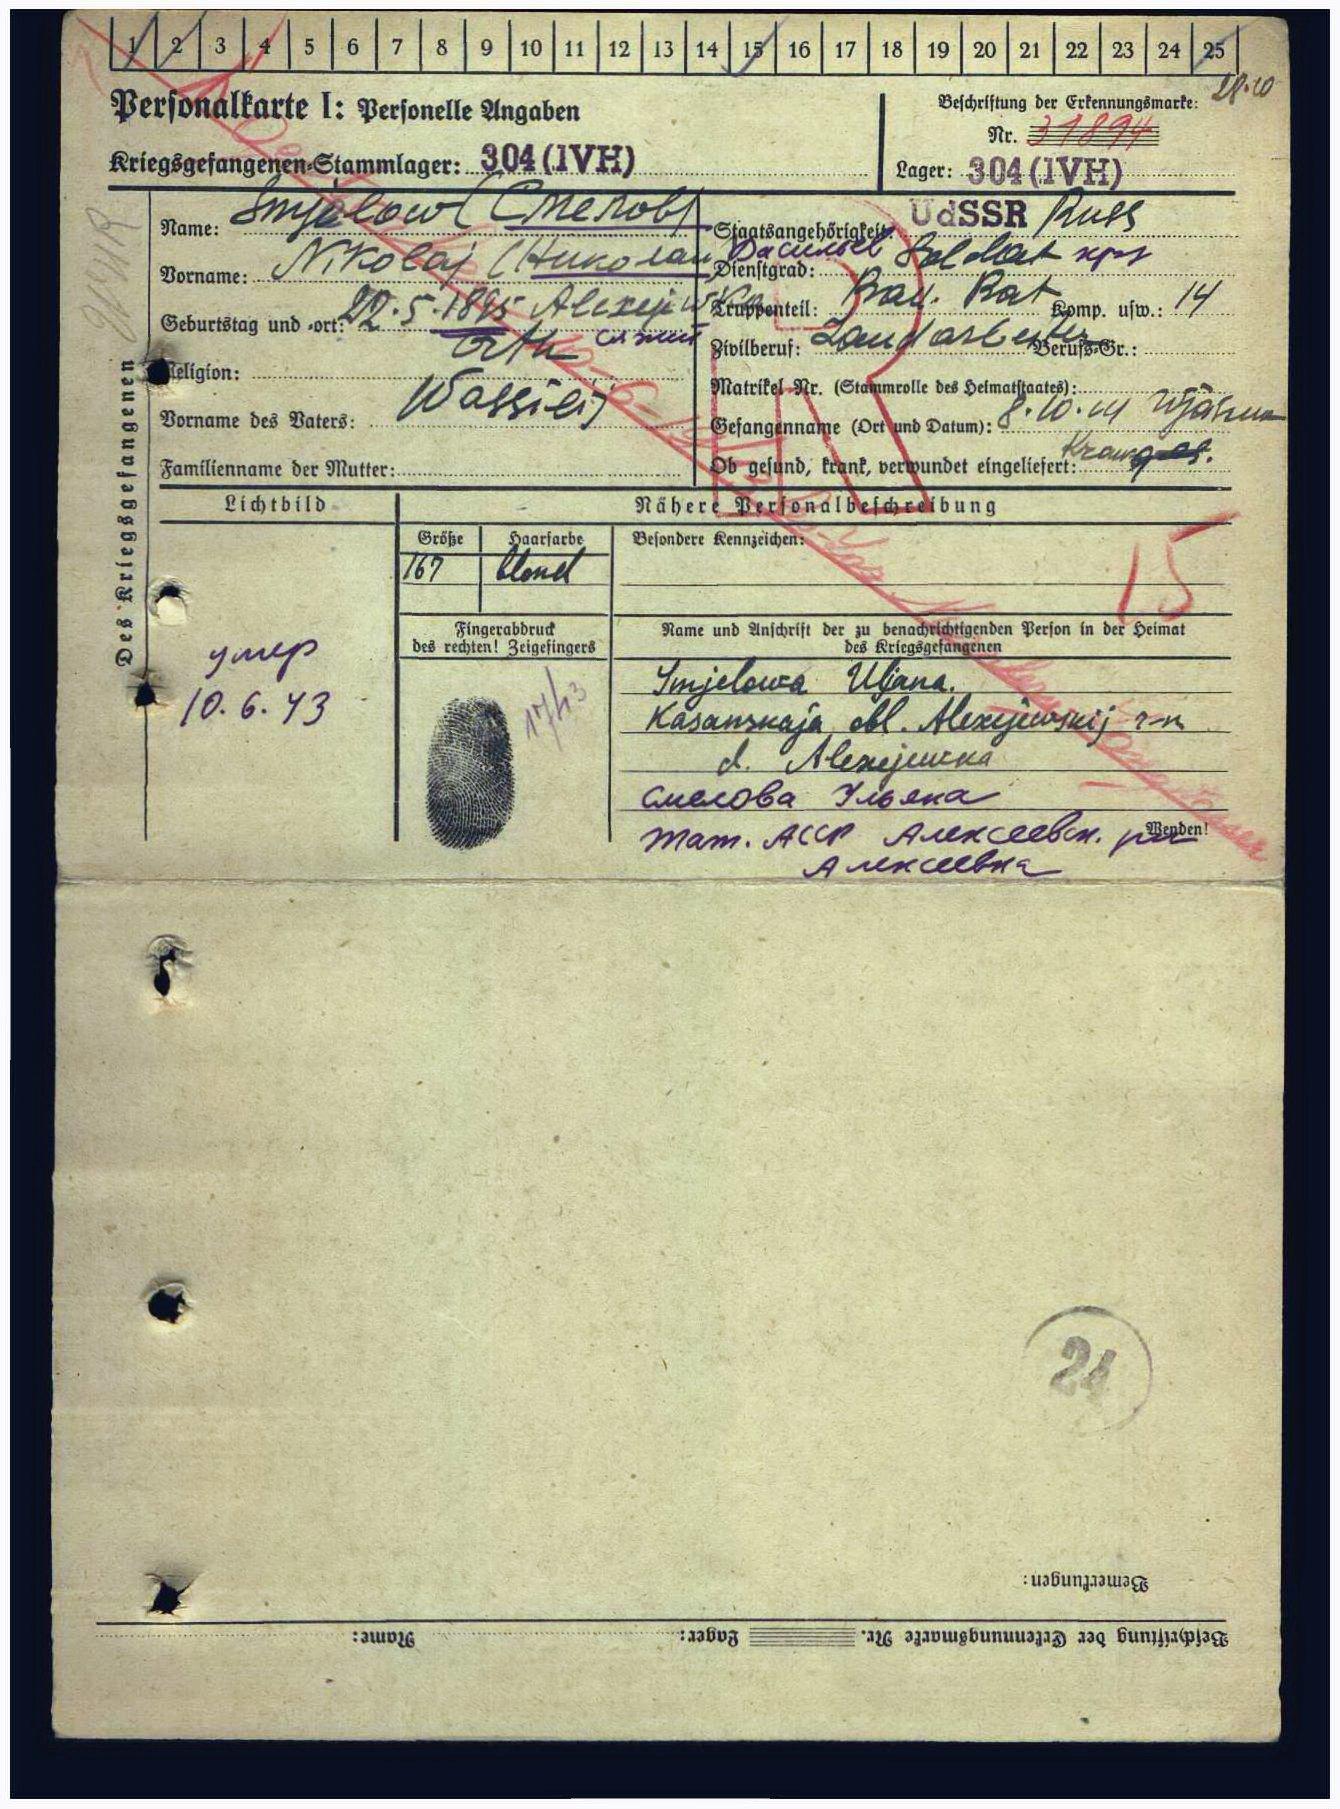 1 2 3 4 5 6 7 8 9 10 11 12 13 14 15 16 17 18 19 20 21 22 23 24 25
28.10
Personalkarte I: Personelle Angaben
Beschriftung der Erkennungsmarke:
Nr. 31894
Kriegsgefangenen-Stammlager: 304 (IVH)
Lager: 304 (IVH)
Des Kriegsgefangenen
Name: Smjelow (Смелов)
Staatsangehörigkeit: UdSSR Russ
Vorname: Nikolaj (Николай Васильев
Dienstgrad: Soldat
Geburtstag und -ort: 22.5.1895 Alexejewka
Truppenteil: Bau. Bat Komp. usw.: 14
Religion: Orth
Zivilberuf: Landarbeiter Berufs-Gr.:
Matrikel Nr. (Stammrolle des Heimatstaates):
Vorname des Vaters: Wassilij
Gefangenname (Ort und Datum): 8.10.41 Wjasma
Familienname der Mutter:
Ob gesund, krank, verwundet eingeliefert:
Lichtbild
Nähere Personalbeschreibung
Größe Haarfarbe Besondere Kennzeichen:
167 blond
15
Fingerabdruck
des rechten! Zeigefingers
Name und Anschrift der zu benachrichtigenden Person in der Heimat
des Kriegsgefangenen
умер
10.6.43
17/43
Smjelowa Uljana.
Kasanskaja obl. Alexejewskij r-n
d. Alexejewka
Смелова Ульяна
Тат. АССР Алексеевск. р-н
Wenden!
Алексеевка
24
Bemerkungen:
Beschriftung der Erkennungsmarke Nr. Lager: Name: